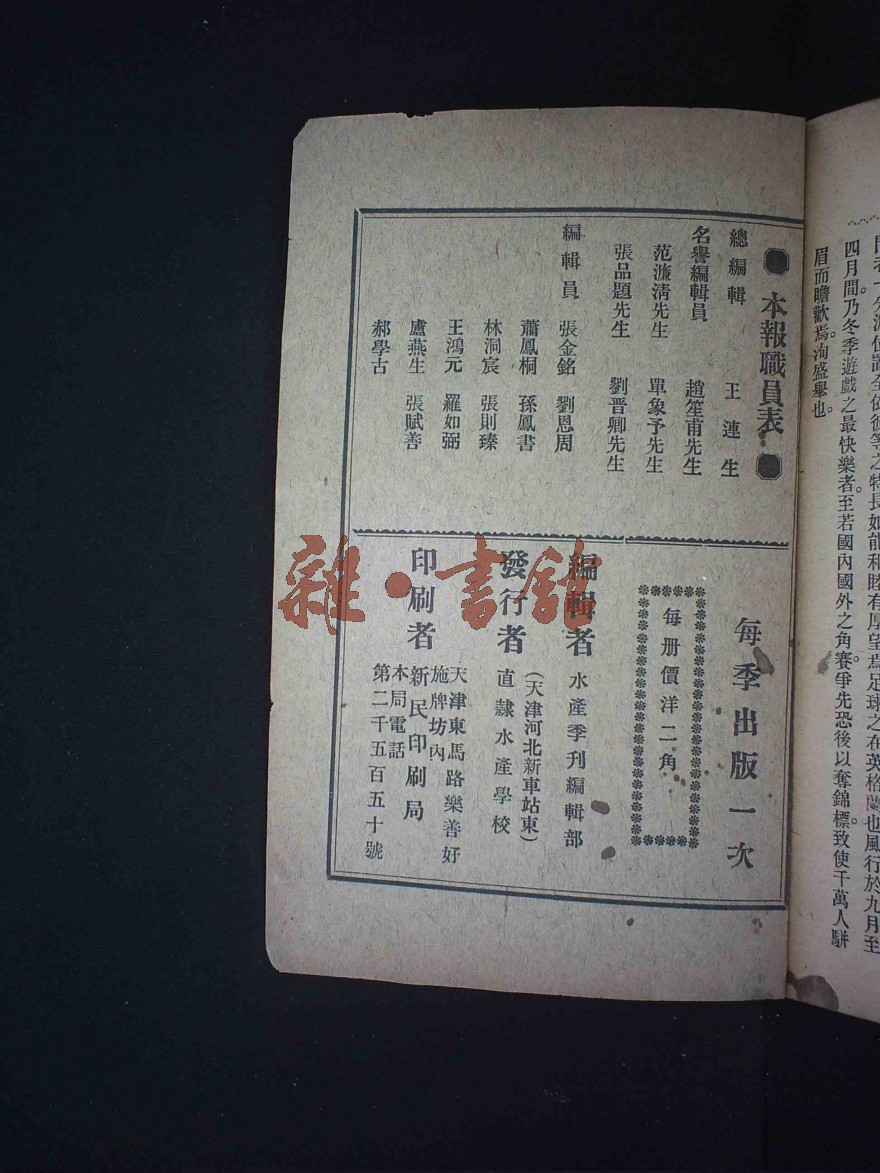 四月間乃冬季遊戲之最快樂者至若國內國外之角賽爭先恐後以奪錦標致使千萬人駢
眉而瞻歡焉洵盛舉也。
本報職員表
總編輯 王連生
名譽編輯員 趙笙甫先生
范濂清先生 單象予先生
張品題先生 劉晋卿先生
編輯員 張金銘 劉恩周
蕭鳳桐 孫鳳書
林洞宸 張則臻
王鴻元 羅如弼
盧燕生 張賦善
郝學古
每季出版一次
每册價洋二角
編輯者 水產季刊編輯部
(天津河北新車站東)
發行者 直隸水產學校
天津東馬路樂善好
施牌坊內
印刷者 新民印刷局
本局電話
第二千五百五十號
雜·書館